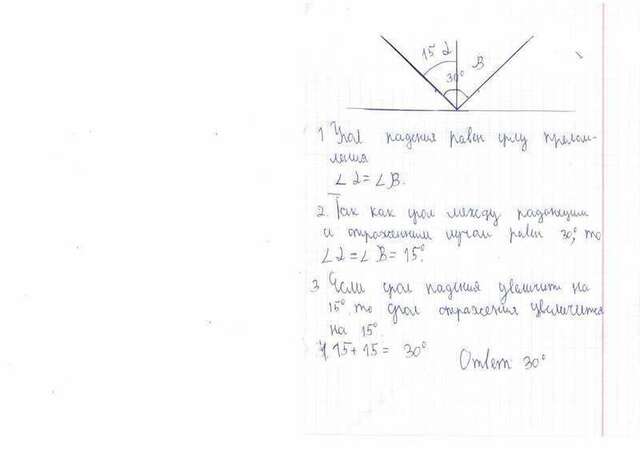 15 α
30°
B
1 Угол падения равен углу прелом-
ления
∠α = ∠B.
2. Так как угол между падающим
и отраженним лучам равен 30°, то
∠α = ∠B = 15°.
3 Если угол падения увеличит на
15°, то угол отражения увеличится
на 15°.
15 + 15 = 30°
Ответ 30°